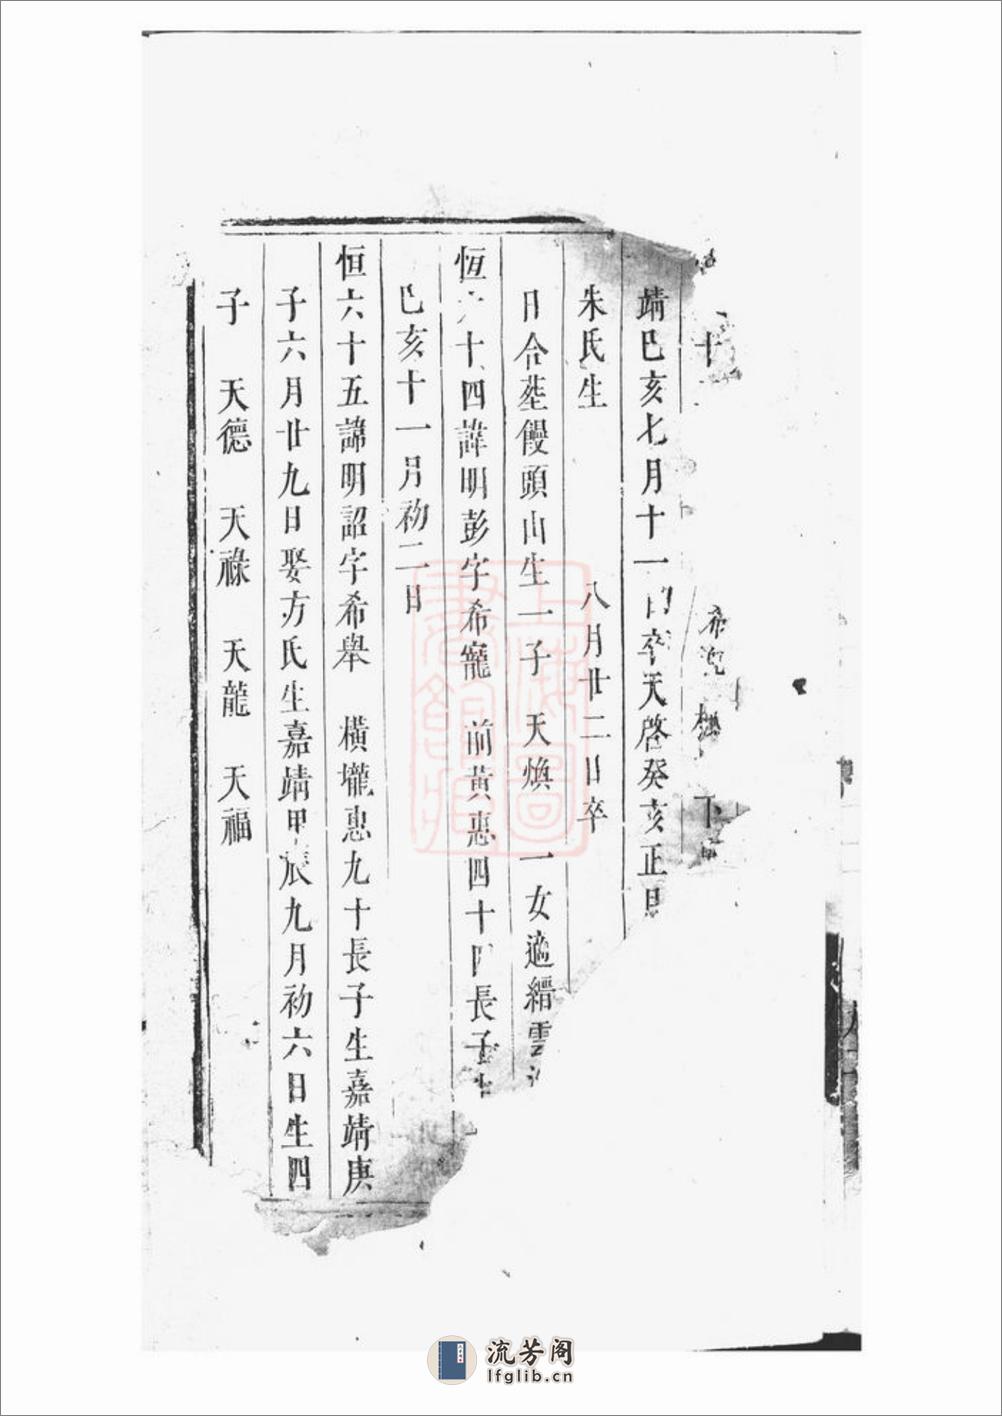 十　希　下
靖巳亥七月十一日卒天啓癸亥正月
朱氏生　八月廿二日卒
日合塟饅頭山生一子　天煥　一女適縉雲
恒六十四諱明彭字希寵　前黄惠四十四長子生
巳亥十一月初二日
恒六十五諱明詔字希舉　橫壠惠九十長子生嘉靖庚
子六月廿九日娶方氏生嘉靖甲辰九月初六日生四
子　天德　天祿　天龍　天福
上海圖書館藏
流芳阁
lfglib.cn